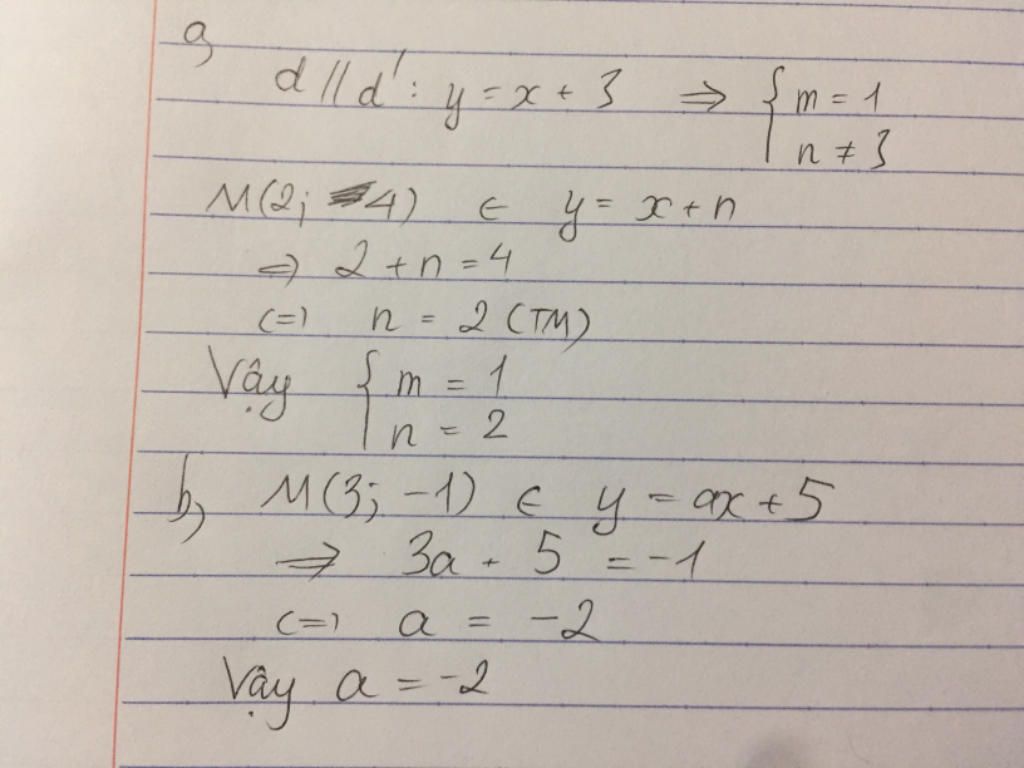 a,
d // d' : y = x + 3 ⇒ { m = 1
n ≠ 3
M(2; 4) ∈ y = x + n
⇒ 2 + n = 4
(=) n = 2 (TM)
Vậy { m = 1
n = 2
b, M(3; -1) ∈ y = ax + 5
⇒ 3a + 5 = -1
(=) a = -2
Vậy a = -2